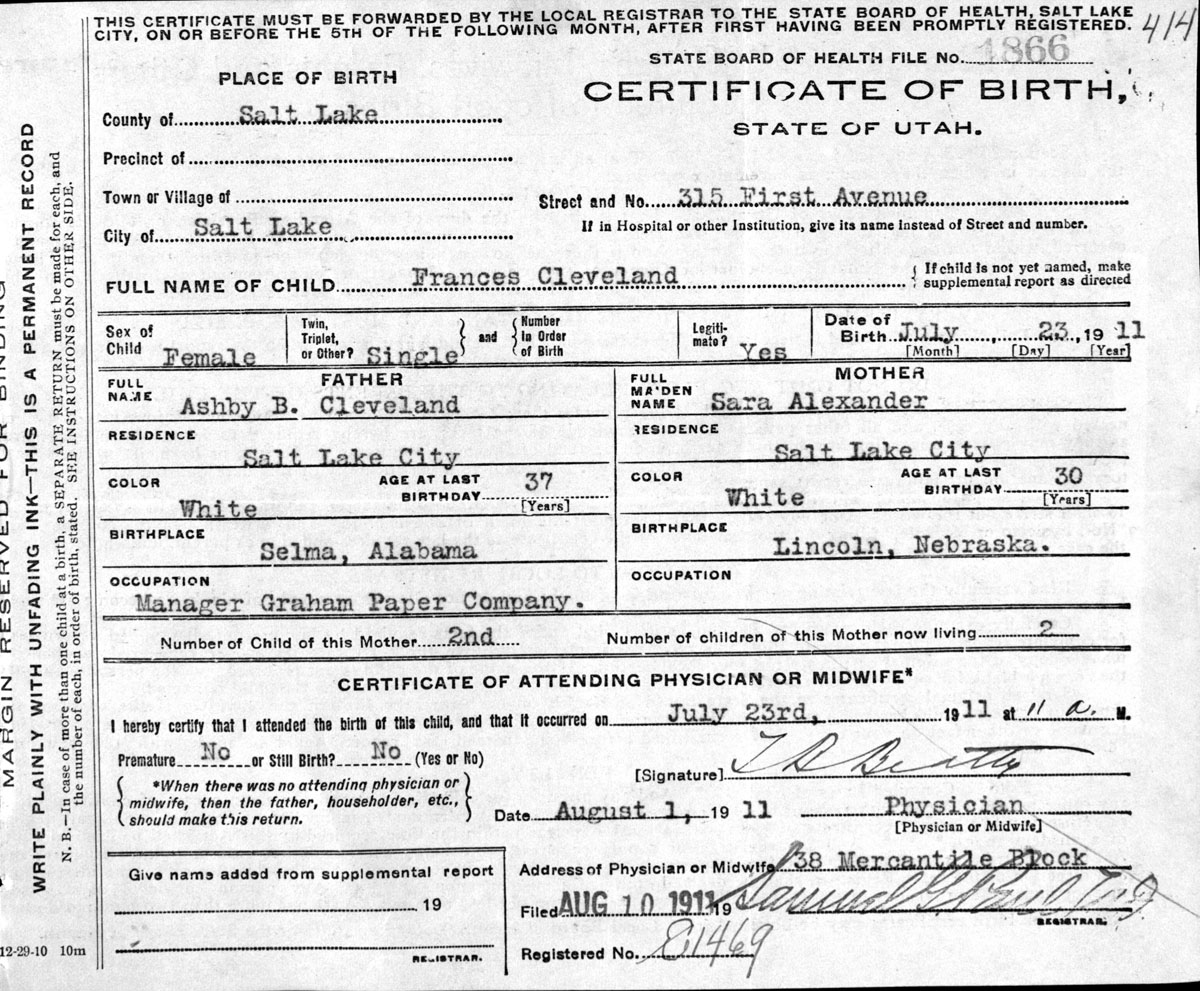 THIS CERTIFICATE MUST BE FORWARDED BY THE LOCAL REGISTRAR TO THE STATE BOARD OF HEALTH, SALT LAKE
CITY, ON OR BEFORE THE 5TH OF THE FOLLOWING MONTH, AFTER FIRST HAVING BEEN PROMPTLY REGISTERED.
414
STATE BOARD OF HEALTH FILE No. 1866
CERTIFICATE OF BIRTH,
STATE OF UTAH.
PLACE OF BIRTH
County of Salt Lake
Precinct of
Town or Village of
City of Salt Lake
Street and No. 315 First Avenue
If in Hospital or other Institution, give its name instead of Street and number.
FULL NAME OF CHILD Frances Cleveland
If child is not yet named, make
supplemental report as directed
Sex of Child Female
Twin, Triplet, or Other? Single
and
Number in Order of Birth
Legitimate? Yes
Date of Birth July, 23, 1911
[Month] [Day] [Year]
FATHER
FULL NAME Ashby B. Cleveland
RESIDENCE
Salt Lake City
COLOR White
AGE AT LAST BIRTHDAY 37
[Years]
BIRTHPLACE
Selma, Alabama
OCCUPATION
Manager Graham Paper Company.
MOTHER
FULL MAIDEN NAME Sara Alexander
RESIDENCE
Salt Lake City
COLOR White
AGE AT LAST BIRTHDAY 30
[Years]
BIRTHPLACE
Lincoln, Nebraska.
OCCUPATION
Number of Child of this Mother 2nd Number of children of this Mother now living 2
CERTIFICATE OF ATTENDING PHYSICIAN OR MIDWIFE*
I hereby certify that I attended the birth of this child, and that it occurred on July 23rd, 1911 at 11 a. M.
Premature No or Still Birth? No (Yes or No)
*When there was no attending physician or
midwife, then the father, householder, etc.,
should make this return.
[Signature] T B Beatty
Date August 1, 1911 Physician
[Physician or Midwife]
Give name added from supplemental report
19
REGISTRAR.
Address of Physician or Midwife 38 Mercantile Block
Filed AUG 10 1911 19 Samuel G. Paul
REGISTRAR.
Registered No. E1469
12-29-10 10m
MARGIN RESERVED FOR BINDING
WRITE PLAINLY WITH UNFADING INK—THIS IS A PERMANENT RECORD
N. B.—In case of more than one child at a birth, a SEPARATE RETURN must be made for each, and
the number of each, in order of birth, stated. SEE INSTRUCTIONS ON OTHER SIDE.